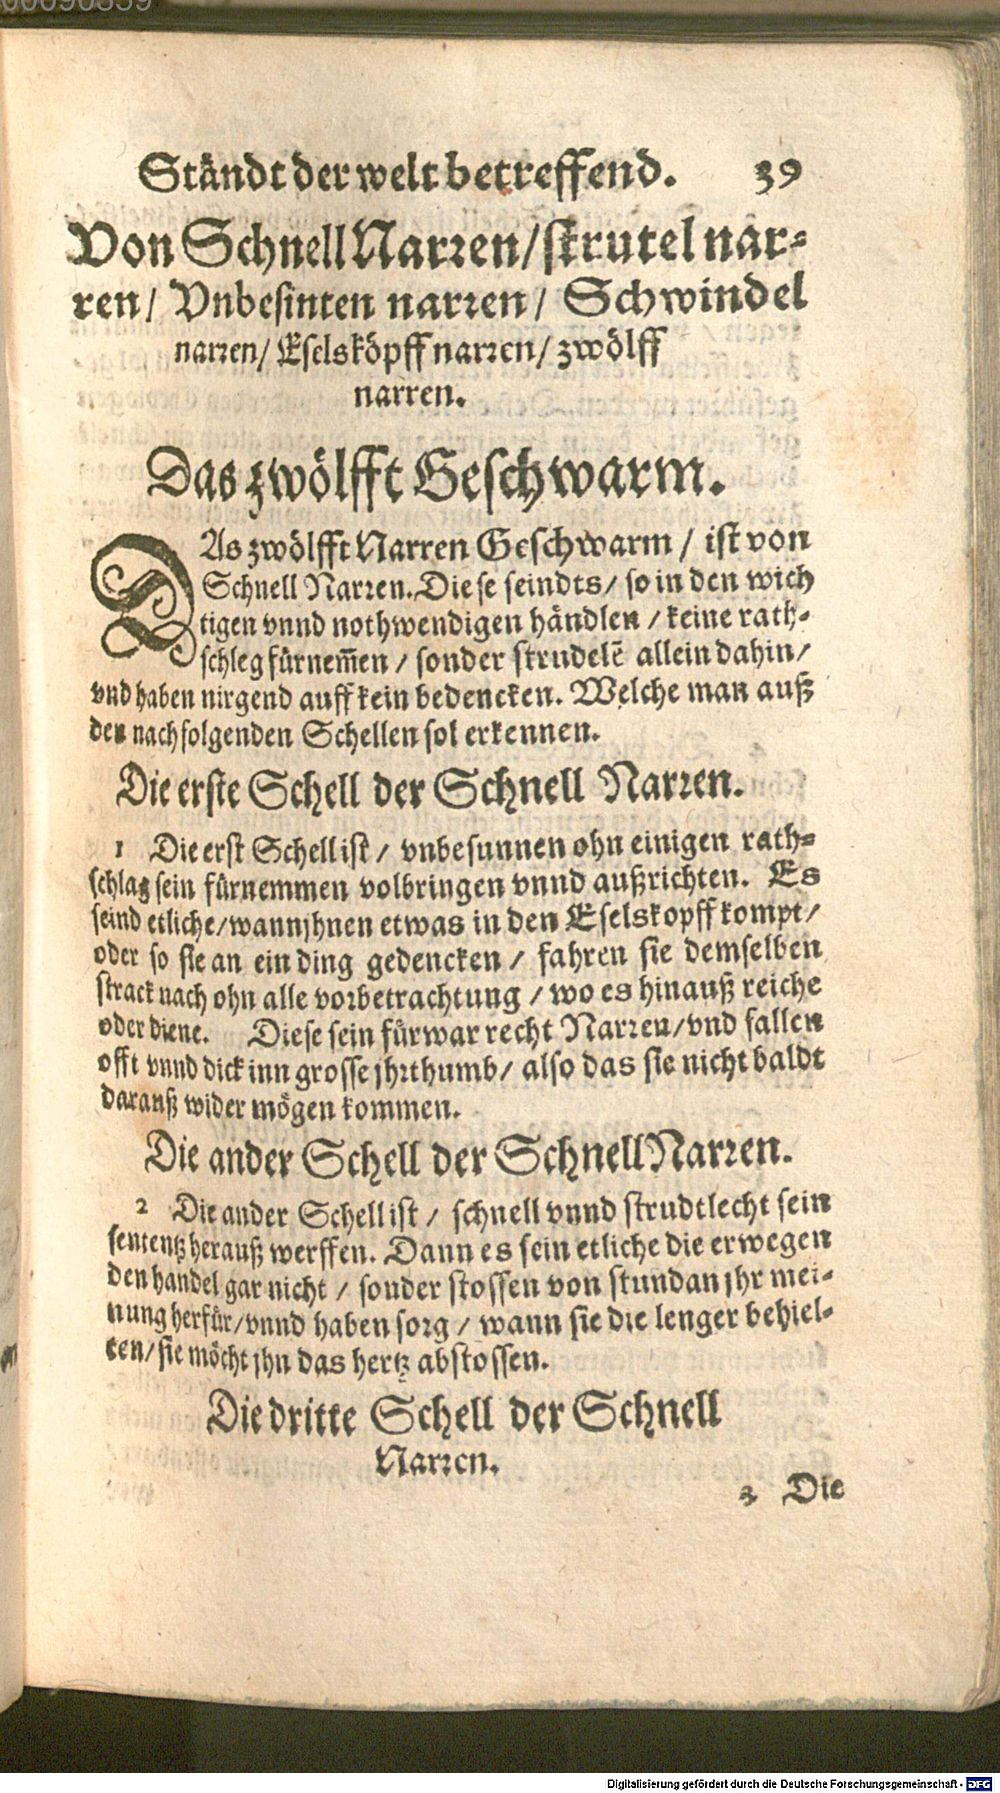 00090859
Ständt der welt betreffend. 39
Von Schnell Narren/ strutel nar-
ren/ Vnbesinten narren/ Schwindel
narren/ Eselsköpff narren/ zwölff
narren.
Das zwölfft Geschwarm.
DAs zwölfft Narren Geschwarm / ist von
Schnell Narren. Diese seindts/ so in den wich
tigen vnnd nothwendigen händlen / keine rath-
schleg fürnem̄en / sonder strudelē allein dahin/
vnd haben nirgend auff kein bedencken. Welche man auß
den nachfolgenden Schellen sol erkennen.
Die erste Schell der Schnell Narren.
1 Die erst Schell ist / vnbesunnen ohn einigen rath-
schlag sein fürnemmen volbringen vnnd außrichten. Es
seind etliche/wann jhnen etwas in den Eselskopff kompt/
oder so sie an ein ding gedencken / fahren sie demselben
strack nach ohn alle vorbetrachtung / wo es hinauß reiche
oder diene. Diese sein fürwar recht Narren/vnd fallen
offt vnnd dick inn grosse jhrthumb/ also das sie nicht baldt
darauß wider mögen kommen.
Die ander Schell der Schnell Narren.
2 Die ander Schell ist / schnell vnnd strudtlecht sein
sententz herauß werffen. Dann es sein etliche die erwegen
den handel gar nicht / sonder stossen von stundan jhr mei-
nung herfür/vnnd haben sorg / wann sie die lenger behiel-
ten/ sie möcht jhn das hertz abstossen.
Die dritte Schell der Schnell
Narren.
3 Die
Digitalisierung gefördert durch die Deutsche Forschungsgemeinschaft - DFG